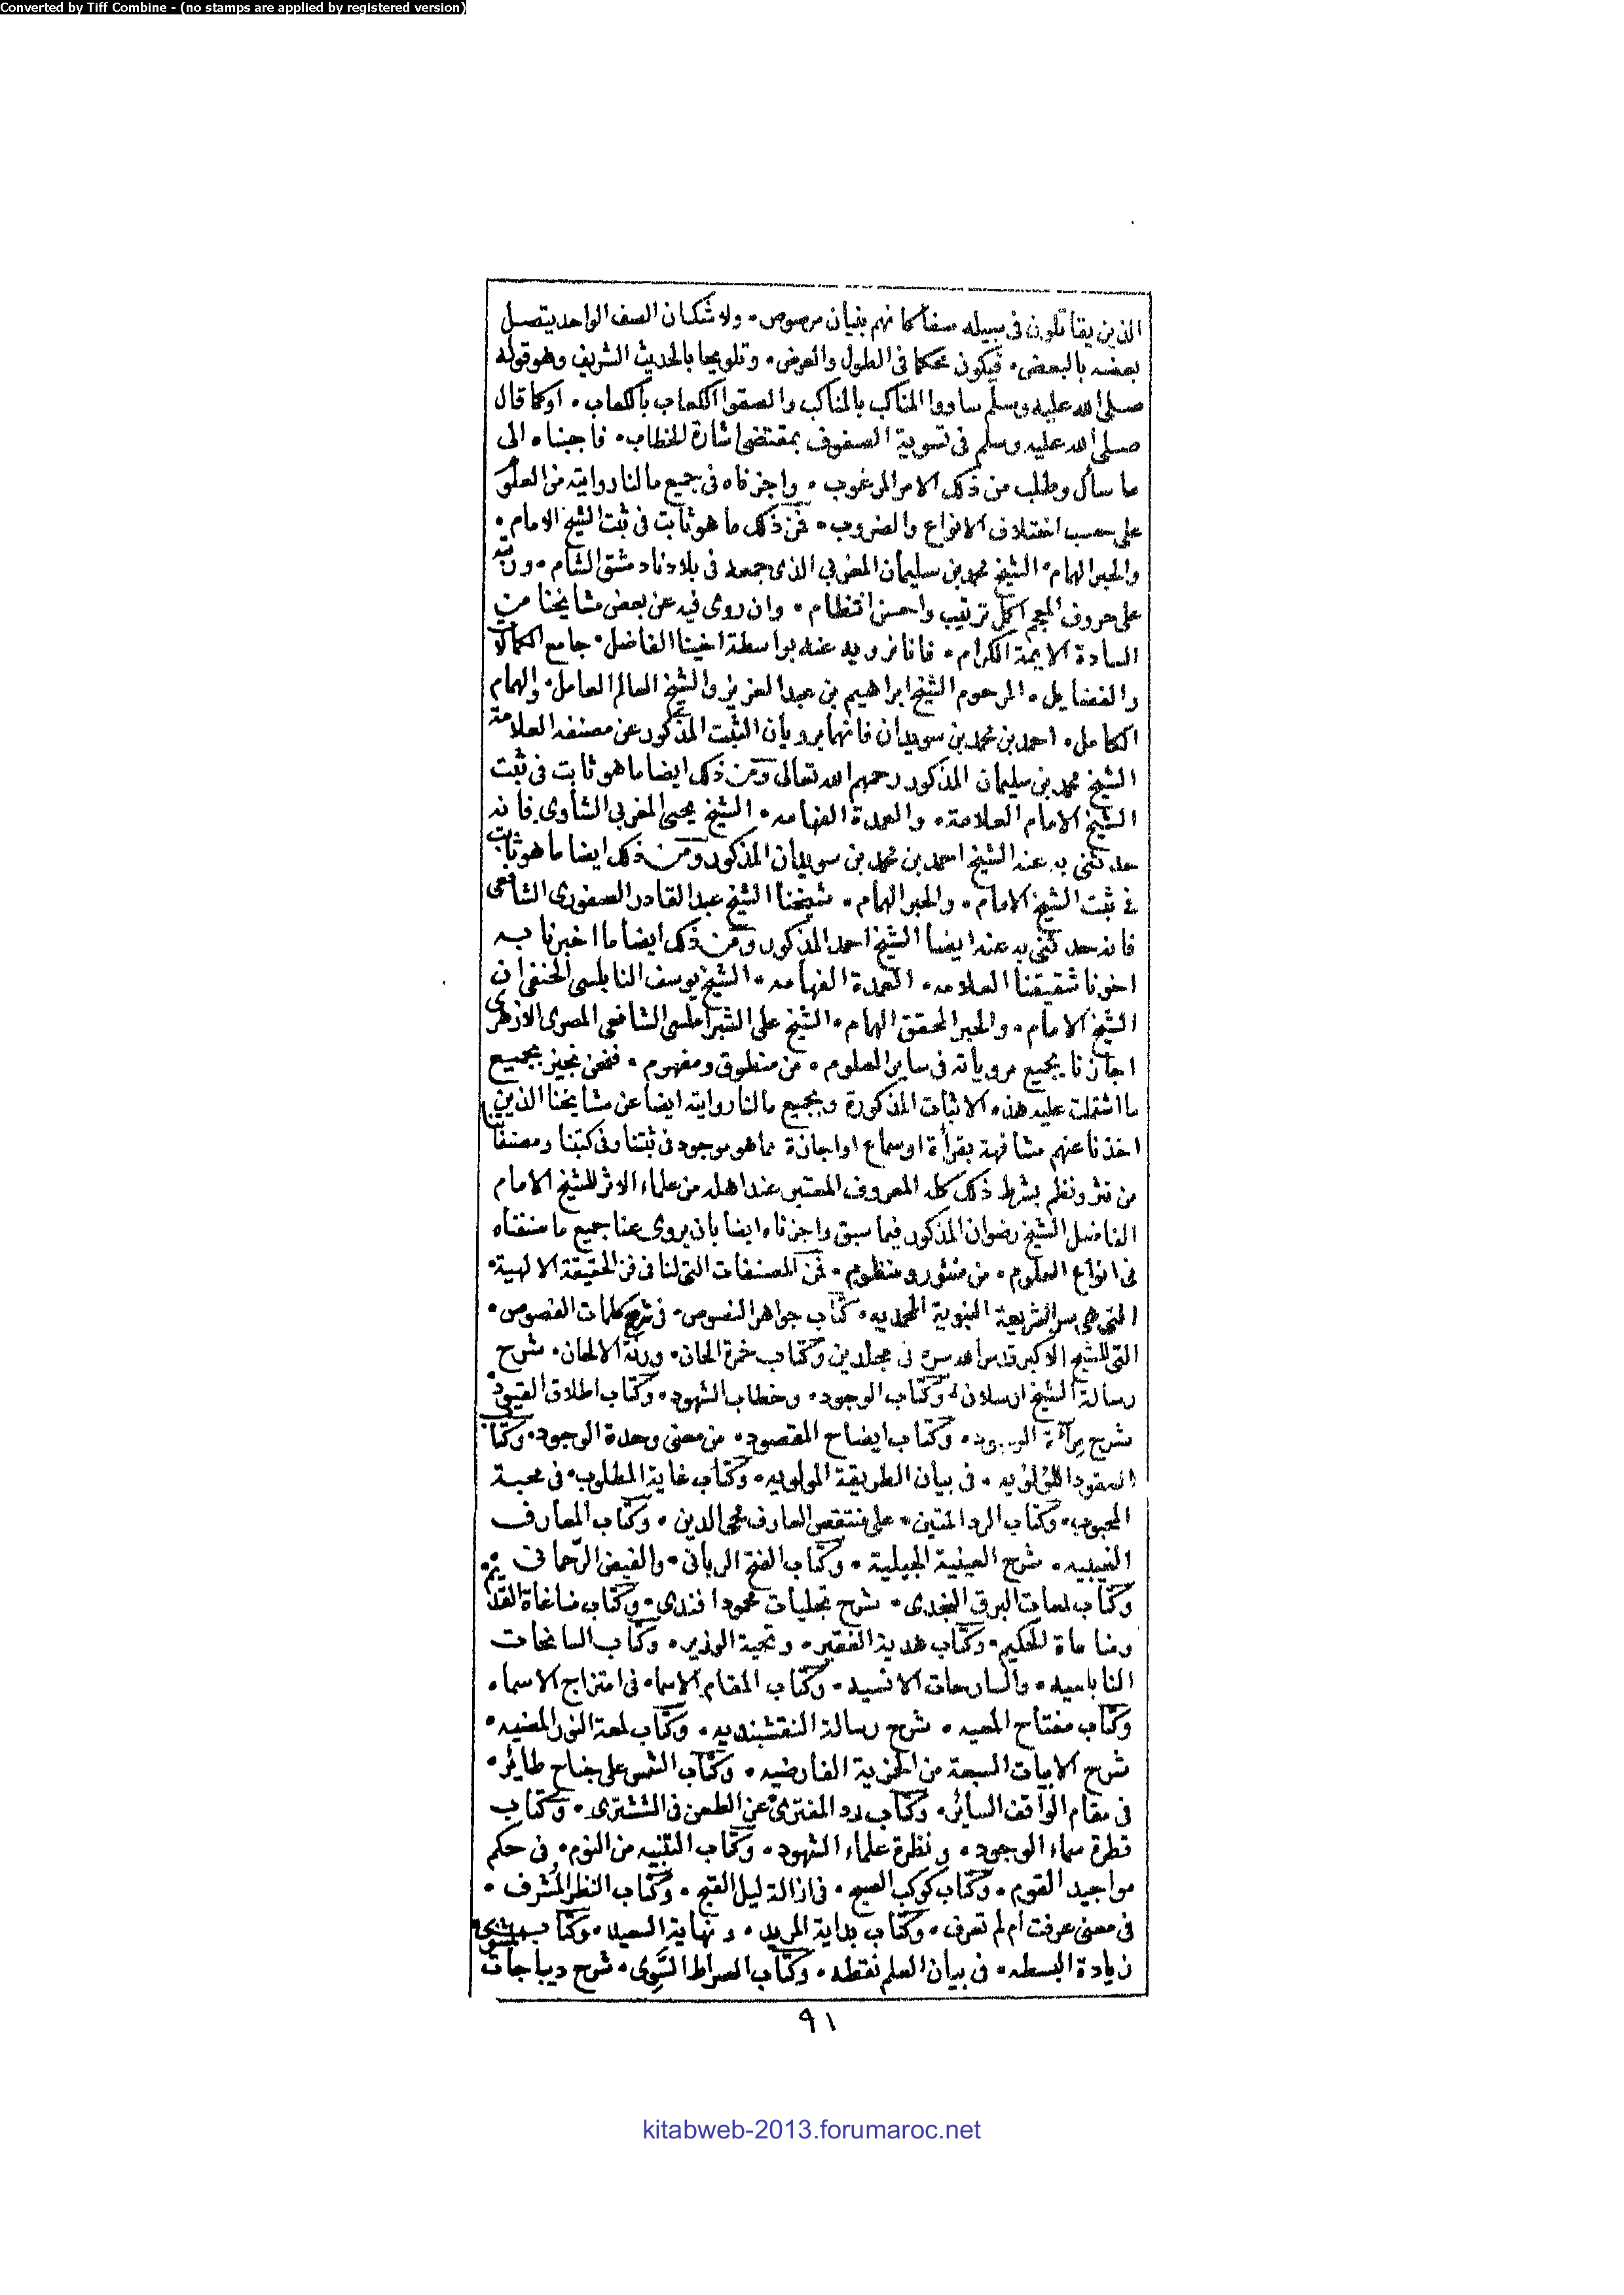 Converted by Tiff Combine - (no stamps are applied by registered version)
الذين يقاتلون فى سبيله صفا كانهم بنيان مرصوص • ولا شك ان الصف الواحد يتصل
بعضه بالبعض • فيكون محكما فى الطول والعرض • وتلويحا بالحديث الشريف وهو قوله
صلى الله عليه وسلم ساووا المناكب بالمناكب والصقوا الكعاب بالكعاب • او كما قال
صلى الله عليه وسلم فى تسوية الصفوف بمقتضى اشارة الخطاب • فاجبناه الى
ما سأل وطلب من ذلك الامر المرغوب • واجزناه فى جميع ما لنا روايته من العلوم
على حسب اختلاف الانواع والضروب • فمن ذلك ما هو ثابت فى ثبت الشيخ الامام •
والحبر الهمام • الشيخ محمد بن سليمان المغربي الذى جمعه فى بلادنا دمشق الشام • ورتبه
على حروف المعجم اكمل ترتيب واحسن انتظام • وان روى فيه عن بعض مشايخنا من
السادة الايمة الكرام • فانا نرويه عنه بواسطة اخينا الفاضل • جامع الكمالات
والفضايل • المرحوم الشيخ ابراهيم بن عبد العزيز والشيخ العالم العامل • والهمام
الكامل • احمد بن محمد بن سويدان فانهما يرويان الثبت المذكور عن مصنفه العلامة
الشيخ محمد بن سليمان المذكور رحمهم الله تعالى ومن ذلك ايضا ما هو ثابت فى ثبت
الشيخ الامام العلامة • والعمدة الفهامه • الشيخ يحيى المغربي الشاوى فانه
حدثنى به عنه الشيخ احمد بن محمد بن سويدان المذكور ومن ذلك ايضا ما هو ثابت
فى ثبت الشيخ الامام • والحبر الهمام • شيخنا الشيخ عبد القادر الصفورى الشافعى
فانه حدثنى به عنه ايضا الشيخ احمد المذكور ومن ذلك ايضا ما اخبرنا به
اخونا شقيقنا العلامه • العمدة الفهامه • الشيخ يوسف النابلسى الحنفى ان
الشيخ الامام • والحبر المحقق الهمام • الشيخ على الشبراملسى الشافعى المصرى الازهرى
اجازنا بجميع مروياته فى ساير العلوم • من منطوق ومفهوم • فنحن نجيز بجميع
ما اشتملت عليه هذه الاثبات المذكورة وبجميع ما لنا روايته ايضا عن مشايخنا الذين
اخذنا عنهم مشافهة بقرأة او سماع او اجازة مما هو موجود فى ثبتنا وفى كتبنا ومصنفاتنا
من نثر ونظم بشرط ذلك كله المعروف المعتبر عند اهله من علماء الاثر للشيخ الامام
الفاضل الشيخ رضوان المذكور فيما سبق واجزناه ايضا بان يروى عنا جميع ما صنفناه
فى انواع العلوم • من منثور ومنظوم • فمن المصنفات التى لنا فى فن الحقيقة الالهية •
التى هى سر الشريعة النبوية المحمديه • كتاب جواهر النصوص • فى شرح كلمات الفصوص •
التى للشيخ الاكبر قدس الله سره فى مجلدين وكتاب خمرة الحان • ورنة الالحان • شرح
رسالة الشيخ ارسلان • وكتاب الوجود • وخطاب الشهود • وكتاب اطلاق القيود
شرح مرآة الوجود • وكتاب ايضاح المقصود • من معنى وحدة الوجود • وكتاب
العقود اللؤلؤيه • فى بيان الطريقة المولويه • وكتاب غاية المطلوب • فى محبة
المحبوب • وكتاب الرد المتين • على منتقص العارف محيى الدين • وكتاب المعارف
الغيبيه • شرح العينية الجيلية • وكتاب الفتح الربانى • والفيض الرحمانى
وكتاب لمعات البرق النجدى • شرح تجليات محمود افندى • وكتاب مناغاة القديم
ومناجاة الحكيم • وكتاب هدية الفقير • وتحية الوزير • وكتاب السانحات
النابلسيه • والسارحات الانسيه • وكتاب المقام الاسما • فى امتزاج الاسماء
وكتاب مفتاح المعيه • شرح رسالة النقشبنديه • وكتاب لمعة النور المضيه •
شرح الابيات السبعة من الخمرية الفارضيه • وكتاب الشمس على جناح طائر •
فى مقام الواقف السائر • وكتاب رد المفترى عن الطعن فى الششترى • وكتاب
قطرة سماء الوجود • ونظرة علماء الشهود • وكتاب التنبيه من النوم • فى حكم
مواجيد القوم • وكتاب كوكب الصبح • فى ازالة ليل القبح • وكتاب النظر المشرف •
فى معنى عرفت ام لم تعرف • وكتاب بداية المريد • ونهاية السعيد • وكتاب
زيادة البسطه • فى بيان العلم نقطه • وكتاب الصراط السوى • شرح ديباجات المثنوى
٩١
kitabweb-2013.forumaroc.net